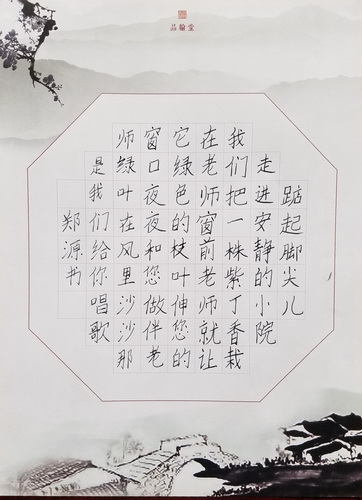 品翰堂
踮起脚尖儿
走进安静的小院
我们把一株紫丁香栽
在老师窗前老师就让
它绿色的枝叶伸您的
窗口夜夜和您做伴老
师绿叶在风里沙沙那
是我们给你唱歌
郑源书